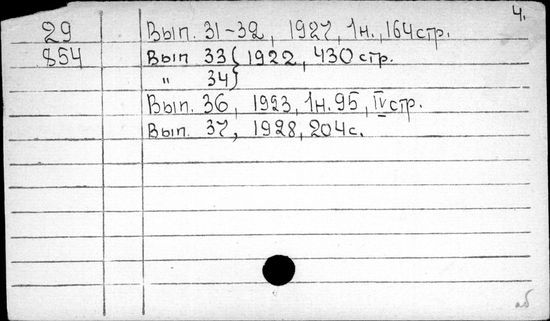 4.
29 Вып. 31-32, 1927, 1н., 164стр.
854 Вып 33{ 1922, 430 стр.
" 34}
Вып. 36, 1923, 1н. 95, IV стр.
Вып. 37, 1928, 204с.
аб